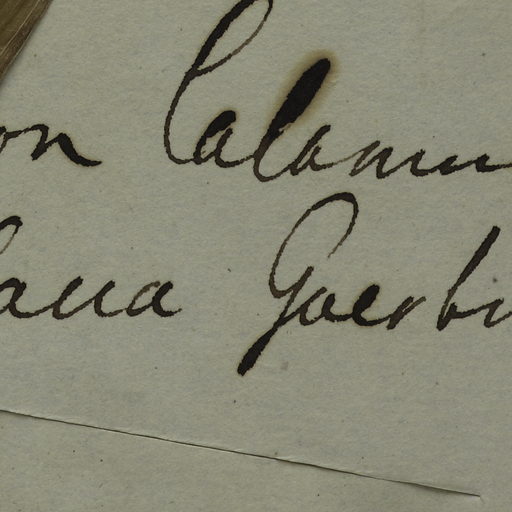 on Calamu
aua Goerbi